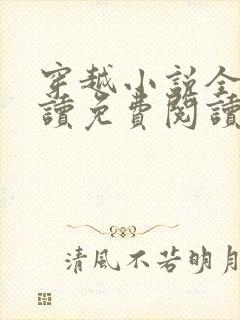 穿越小説全
讀免費閱讀
清風不若明月